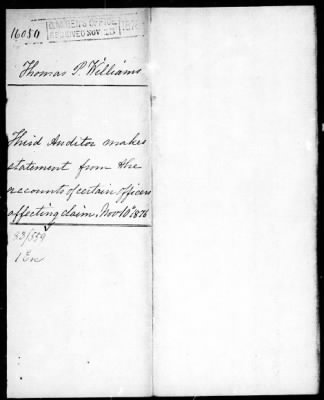 16050
Q.M. GEN'S OFFICE
RECEIVED NOV 23
Thomas P. Williams
Third Auditor makes
statement from the
accounts of certain officers
affecting claim. Nov 10" 1876
83/559
1 En